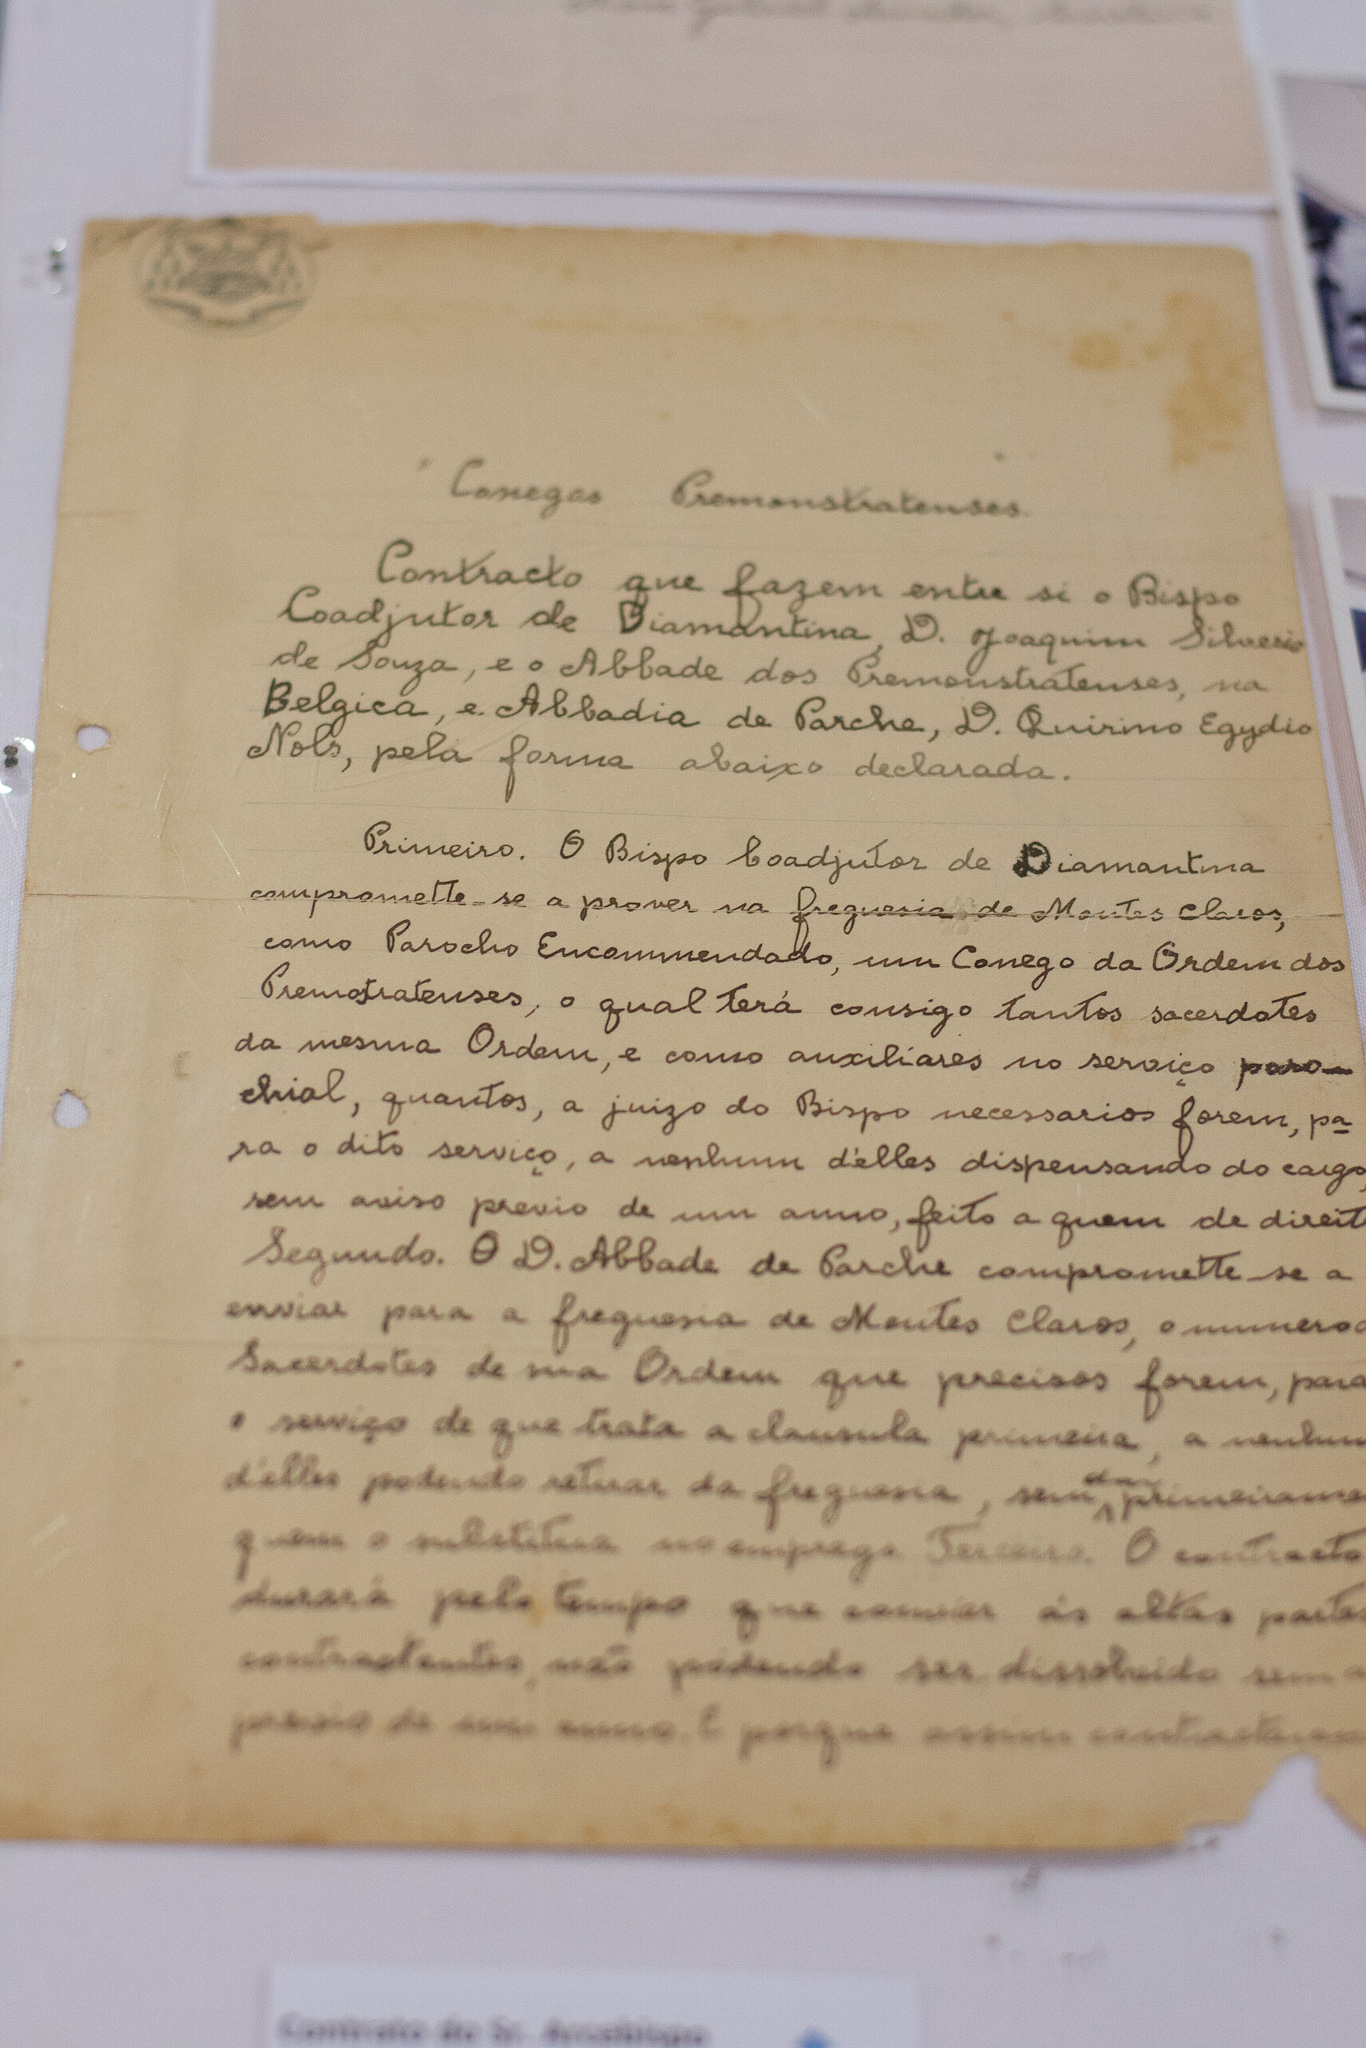 "Conegos Premonstratenses.
Contracto que fazem entre si o Bispo
Coadjutor de Diamantina, D. Joaquim Silverio
de Souza, e o Abbade dos Premonstratenses, na
Belgica, e Abbadia de Parche, D. Quirino Egydio
Nols, pela forma abaixo declarada.
Primeiro. O Bispo Coadjutor de Diamantina
compromette-se a prover na freguesia de Montes Claros,
como Parocho Encommendado, um Conego da Ordem dos
Premostratenses, o qual terá consigo tantos sacerdotes
da mesma Ordem, e como auxiliares no serviço paro-
chial, quantos, a juizo do Bispo necessarios forem, pa-
ra o dito serviço, a nenhum d'elles dispensando do cargo,
sem aviso previo de um anno, feito a quem de direit
Segundo. O D. Abbade de Parche compromette-se a
enviar para a freguesia de Montes Claros, o numero
Sacerdotes de sua Ordem que precisos forem, para
o serviço de que trata a clausula primeira, a nenhum
d'elles podendo retirar da freguesia, sem dar primeirame
quem o substitua no emprego Terceiro. O contracto
durará pelo tempo que convier ás altas partes
contractantes, não podendo ser dissolvido sem a
previo de um anno. E porque assim contractaram
Contrato do Sr. Arcebispo